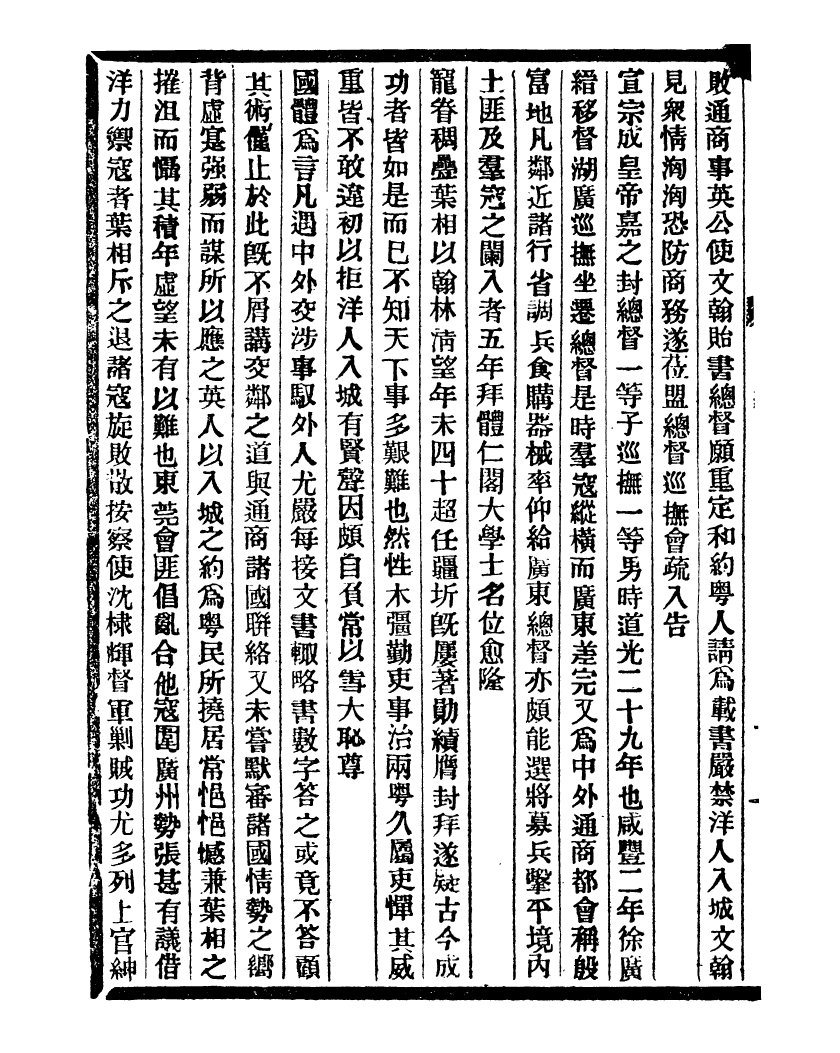 敗通商事英公使文翰貽書總督願重定和約粵人請爲載書嚴禁洋人入城文翰
見衆情洶洶恐防商務遂莅盟總督巡撫會疏入告
宣宗成皇帝嘉之封總督一等子巡撫一等男時道光二十九年也咸豐二年徐廣
縉移督湖廣巡撫坐遷總督是時羣寇縱橫而廣東差完又爲中外通商都會稱殷
富地凡鄰近諸行省調兵食購器械率仰給廣東總督亦頗能選將募兵擊平境內
土匪及羣寇之闌入者五年拜體仁閣大學士名位愈隆
寵眷稠疊葉相以翰林淸望年未四十超任疆圻旣屢著勛績膺封拜遂疑古今成
功者皆如是而已不知天下事多艱難也然性木彊勤吏事治兩粵久屬吏憚其威
重皆不敢違初以拒洋人入城有賢聲因頗自負常以雪大恥尊
國體爲言凡遇中外交涉事馭外人尤嚴每接文書輒略書數字答之或竟不答顧
其術僅止於此旣不屑講交鄰之道與通商諸國聯絡又未嘗默審諸國情勢之嚮
背虛寔强弱而謀所以應之英人以入城之約爲粵民所撓居常悒悒憾兼葉相之
摧沮而懾其積年虛望未有以難也東莞會匪倡亂合他寇圍廣州勢張甚有議借
洋力禦寇者葉相斥之退諸寇旋敗散按察使沈棣輝督軍剿賊功尤多列上官紳